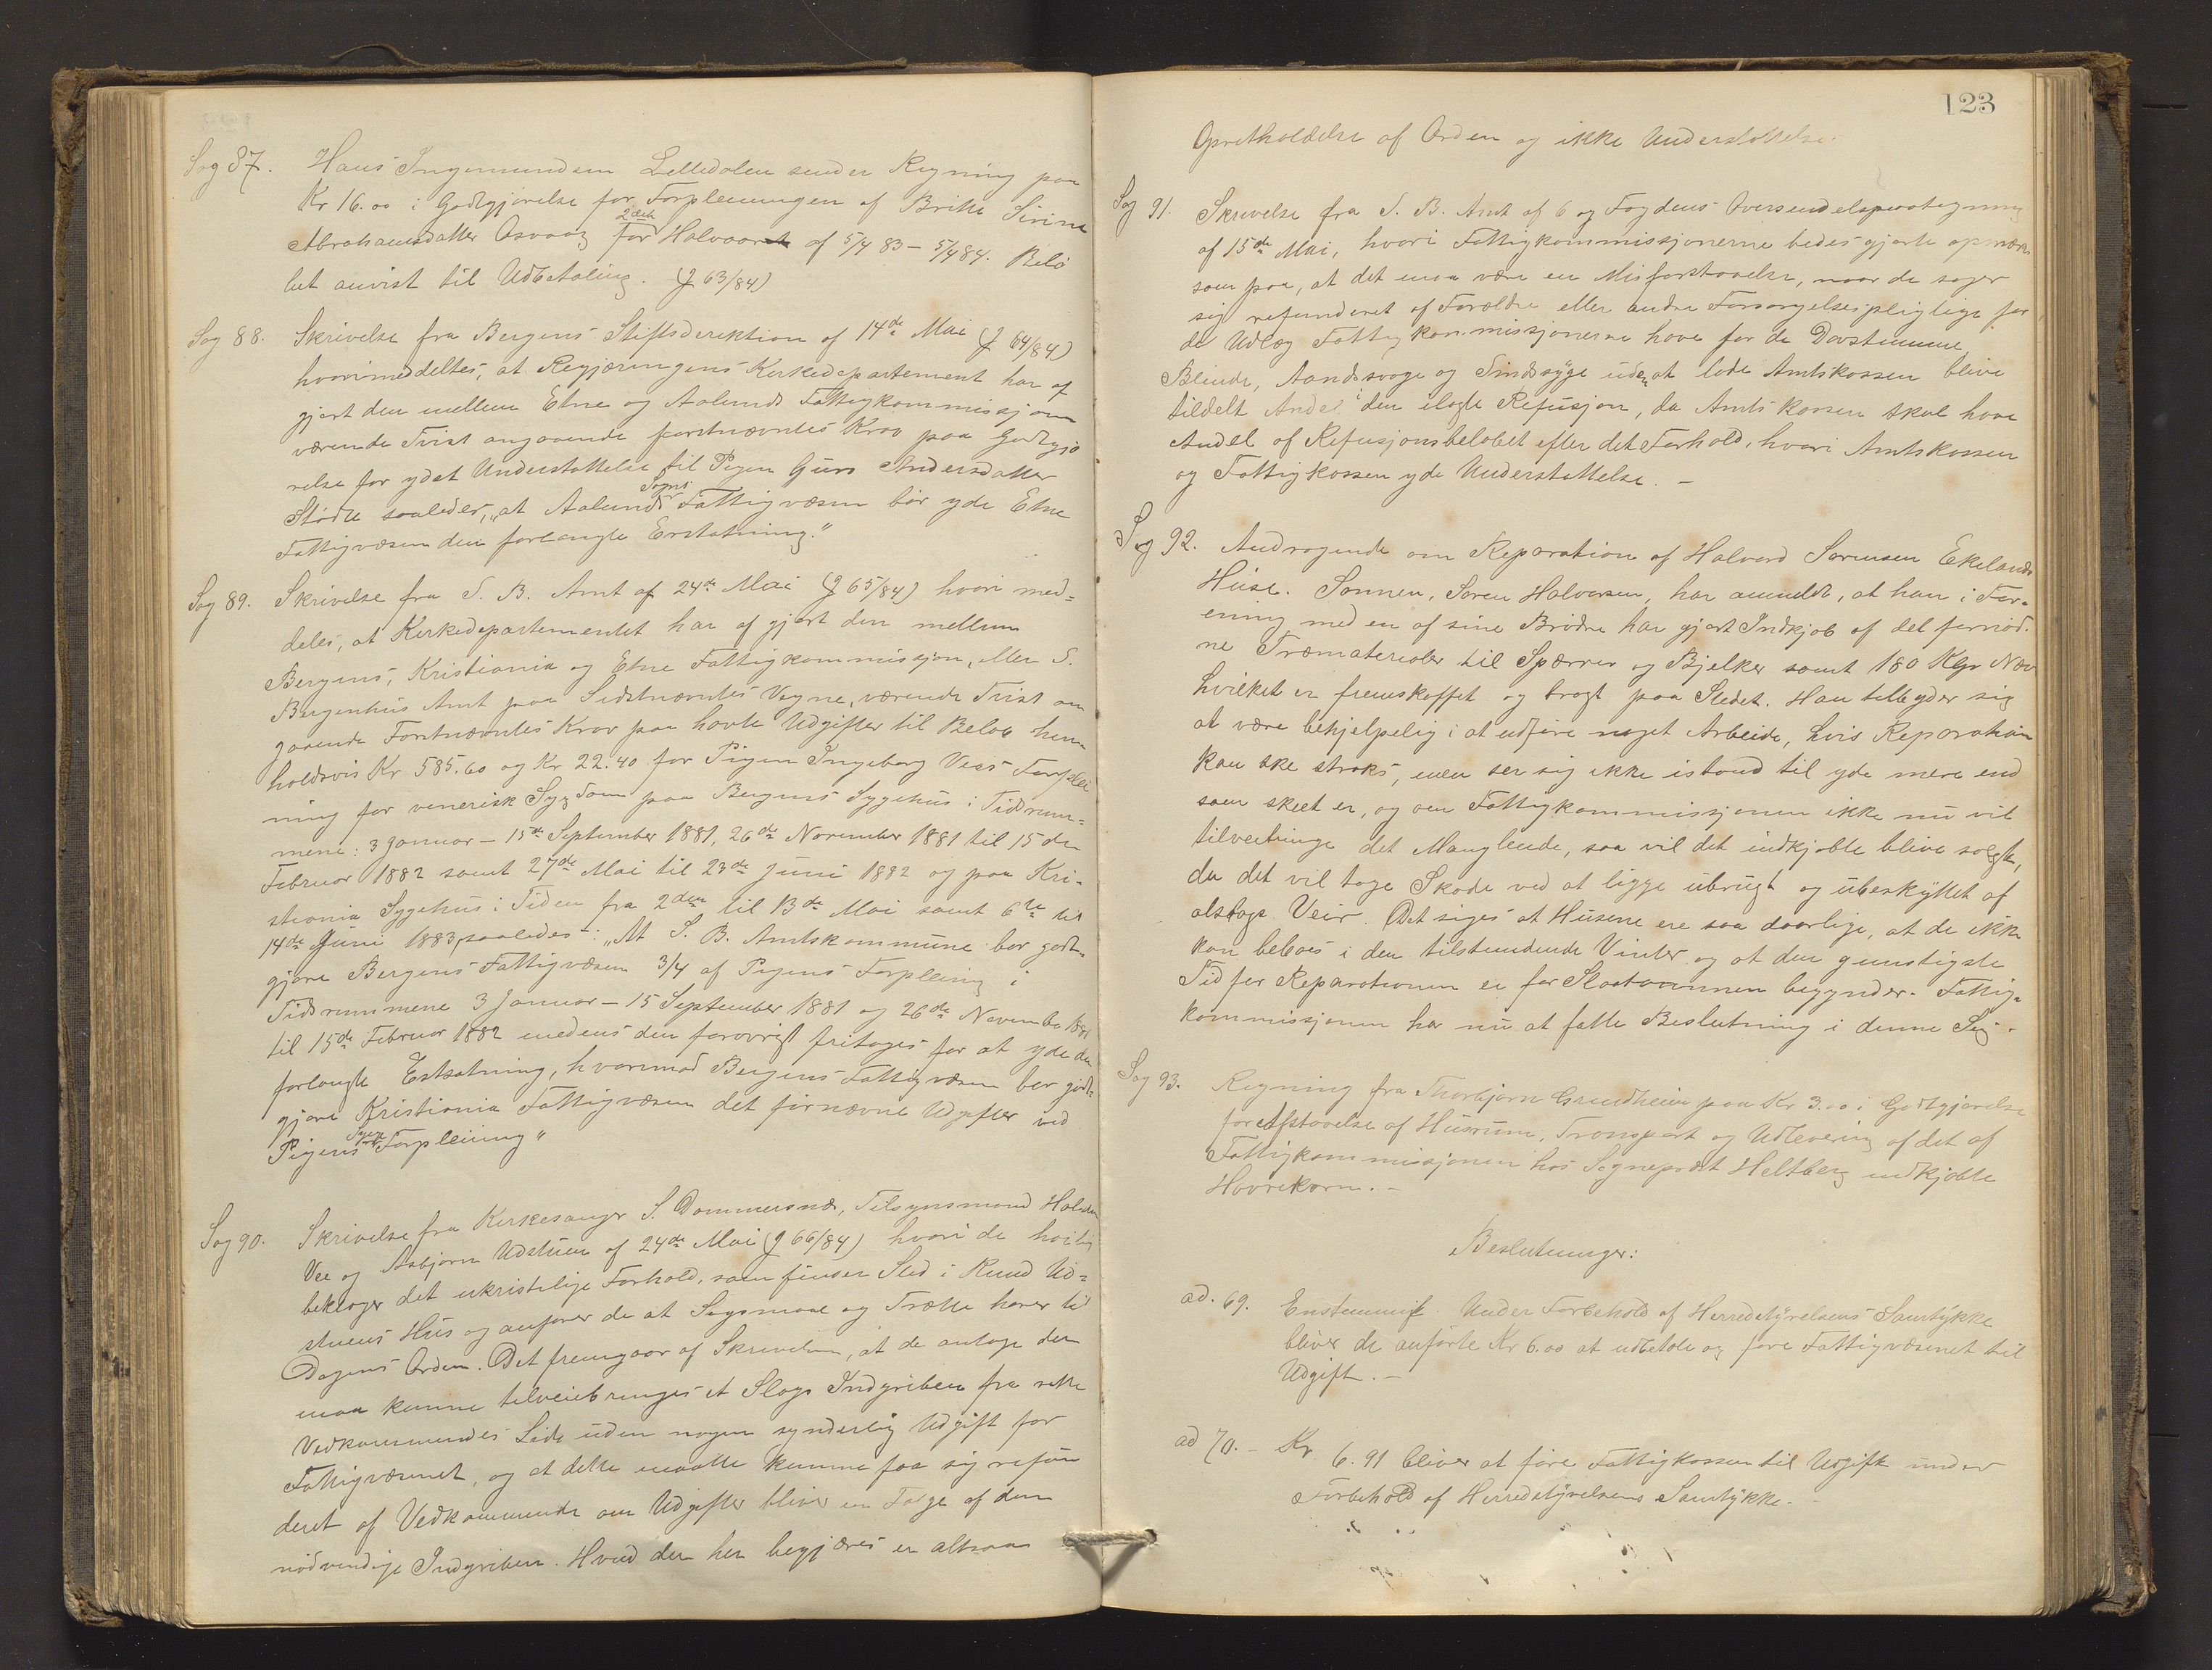 Sag 87. Hans Ingemundsen Lilledalen sender Regning paa
Kr. 16.00 i Godtgjørelse for Forpleiningen af Brithe Sirine
Abrahamsdatter Osvaag for 2det Halvaar af 5/4 83 - 5/4 84. Belø
bet anvist til Udbetaling. (J 63/84)
Sag 88. Skrivelse fra Bergens Stiftsdirektion af 14de Mai (J 64/84)
hvorimeddeltes, at Regjæringens Kirkedepartement har af
gjort den mellem Etne og Aalunds Fattigkommissjon
værende Tvist angaaende førstnævntes Krav paa Godtgjø
relse for ydet Understøttelse til Pigen Guro Andersdatter
Stødle saaledes, "at Aalunds Sogns Fattigvæsen bør yde Etne
Fattigvæsen den forlangte Erstatning."
Sag 89. Skrivelse fra S. B. Amt af 24de Mai (J 65/84) hvori med=
deles, at Kirkedepartementet har afgjort den mellem
Bergens, Kristiania og Etne Fattigkommissjon, eller S.
Bergenhus Amt paa Sidstnævntes Vegne, værende Tvist an
gaaende Førstnævntes Krav paa havte Udgifter til Beløb hen=
holdsvis Kr. 585.60 og Kr 22.40 for Pigen Ingeborg Vees Forplei
ning for venerisk Sygdom paa Bergens Sygehus i Tidsrum=
mene: 3 Januar - 15de September 1881, 26de November 1881 til 15de
Februar 1882 samt 27de Mai til 23de Juni 1882 og paa Kri-
stiania Sygehus i Tiden fra 2den til 13de Mai samt 6te til
14de Juni 1883, saaledes: "At S. B. Amtskommune bør godt-
gjøre Bergens Fattigvæsen 3/4 af Pigens Forpleining i
Tidsrummene 3 Januar - 15 September 1881 og 26de November 1881
til 15de Februar 1882 medens den forøvrigt fritages for at yde den
forlangte Erstatning, hvorimod Bergens Fattigvæsen bør godt-
gjøre Kristiania Fattigvæsen det fornævnte Udgifter ved
Pigens Forpleining"
Sag 90. Skrivelse fra Kirkesanger S. Dommersnæs, Tilsynsmand Halvdan
Vee og Asbjørn Udstuen af 24de Mai (J 66/84) hvori de høilig
beklager det ukristelige Forhold, som finder Sted i Knud Ud=
stuens Hus og anfører de at Sagsmaal og Trætte hører til
Dagens Orden. Det fremgaar af Skrivelsen, at de antage der
maa kunne tilveiebringes et Slags Indgriben fra rette
Vedkommendes Side uden nogen synderlig Udgift for
Fattigvæsenet, og at dette maatte kunne faa sig refun
deret af Vedkommende om Udgifter bliver en Følge af den
nødvendige Indgriben. Hvad der her begjæres er altsaa
123
Opretholdelse af Orden og ikke Understøttelse.
Sag 91. Skrivelse fra S. B. Amt af 6 og Fogdens Oversendelsespaategning
af 15de Mai, hvori Fattigkommissjonerne bedes gjorte opmærk
som paa, at det maa være en Misforstaaelse, naar de søger
sig refunderet af Forældre eller andre Forsørgelsespligtige for
de Udlæg Fattigkommissjonerne have for de Døvstumme,
Blinde, Aandssvage og Sindssyge uden at lade Amtskassen blive
tildelt Andel i den ilagte Refusjon, da Amtskassen skal have
Andel af Refusjonsbeløbet efter det Forhold, hvori Amtskassen
og Fattigkassen yde Understøttelse. -
Sag 92. Andragende om Reparation af Halvard Sørensen Ekelands
Huse. Sønnen, Søren Halvorsen, har anmeldt, at han i For-
ening med en af sine Brødre har gjort Indkjøb af det fornød-
ne Træmaterialer til Spærrer og Bjelker samt 180 Kgr Næver
hvilket er fremskaffet og bragt paa Stedet. Han tilbyder sig
at være behjelpelig i at udføre noget Arbeide, hvis Reparation
kan ske straks, men ser sig ikke istand til yde mere end
som skeet er, og om Fattigkommissjonen ikke nu vil
tilveiebringe det Manglende, saa vil det indkjøbte blive solgt,
da det vil tage Skade ved at ligge ubrugt og ubeskyttet af
alslags Veir. Det siges at Husene ere saa daarlige, at de ikke
kan beboes i den tilstundende Vinter og at den gunstigste
Tid for Reparationen er før Slaatonnen begynder. Fattig-
kommissjonen har nu at fatte Beslutning i denne Sag.
Sag 93. Regning fra Thorbjørn Grindheim paa Kr 3.00 i Godtgjørelse
for Afstaaelse af Husrum, Transport og Udlevering af det af
Fattigkommissjonen hos Sogneprest Heltberg indkjøbte
Havrekorn. -
Beslutninger:
ad. 69. Enstemmigt. Under Forbehold af Herredstyrelsens Samtykke
bliver de anførte Kr 6.00 at udbetale og føre Fattigvæsenet til
Udgift. -
ad 70. - Kr 6.91 bliver at føre Fattigkassen til Udgift under
Forbehold af Herredstyrelsens Samtykke.